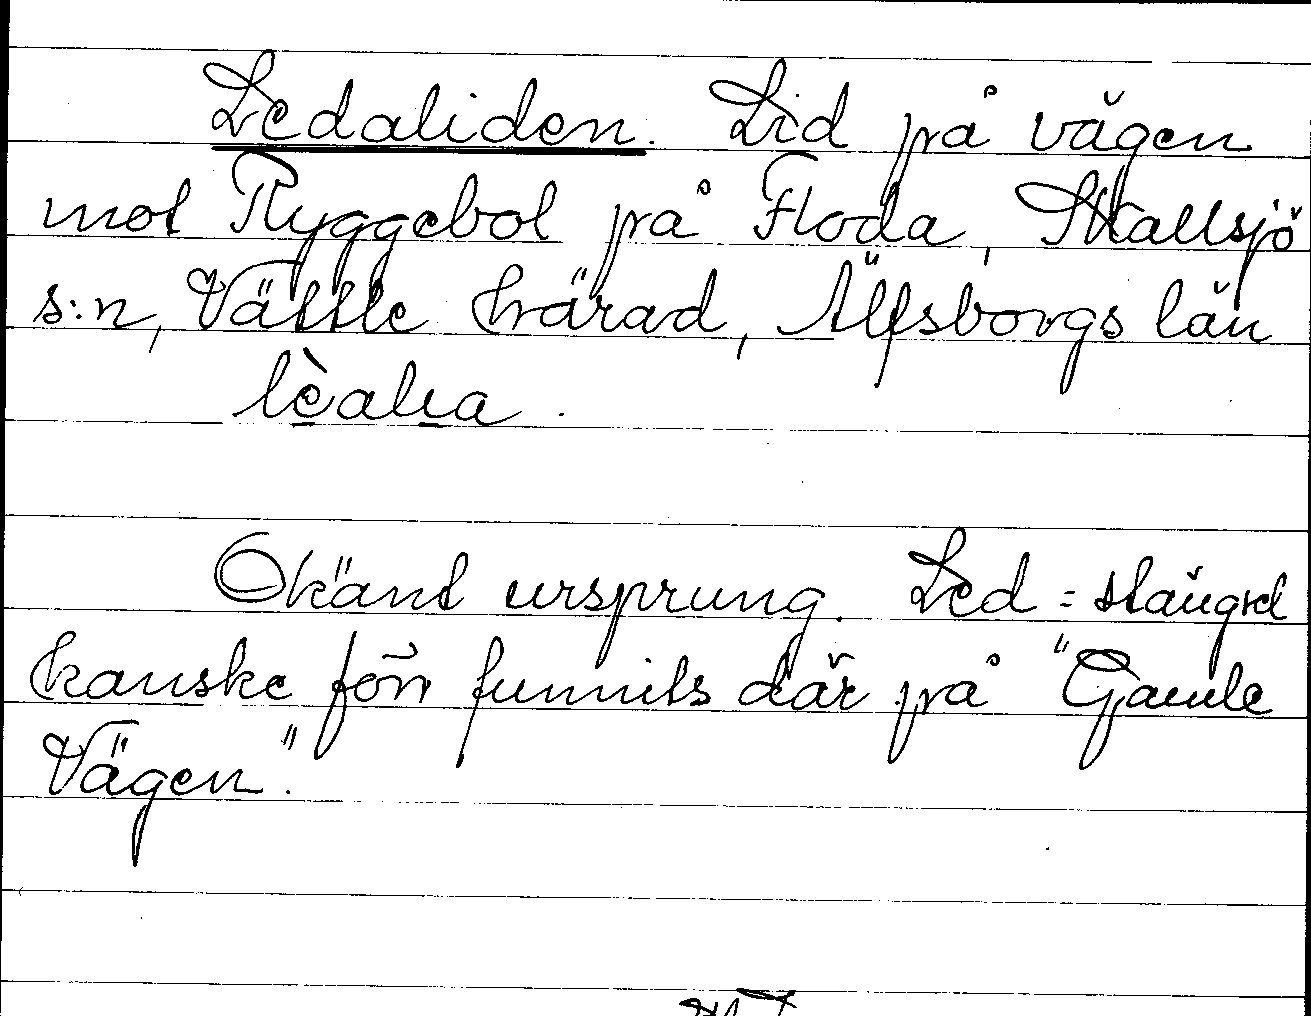 Ledaliden. Lid på vägen
mot Ryggebol på Floda, Skallsjö
s:n, Vättle härad, Älfsborgs län
lèalia.
Okänt ursprung. Led = stängsel
kanske förr funnits där på "Gamle
Vägen".